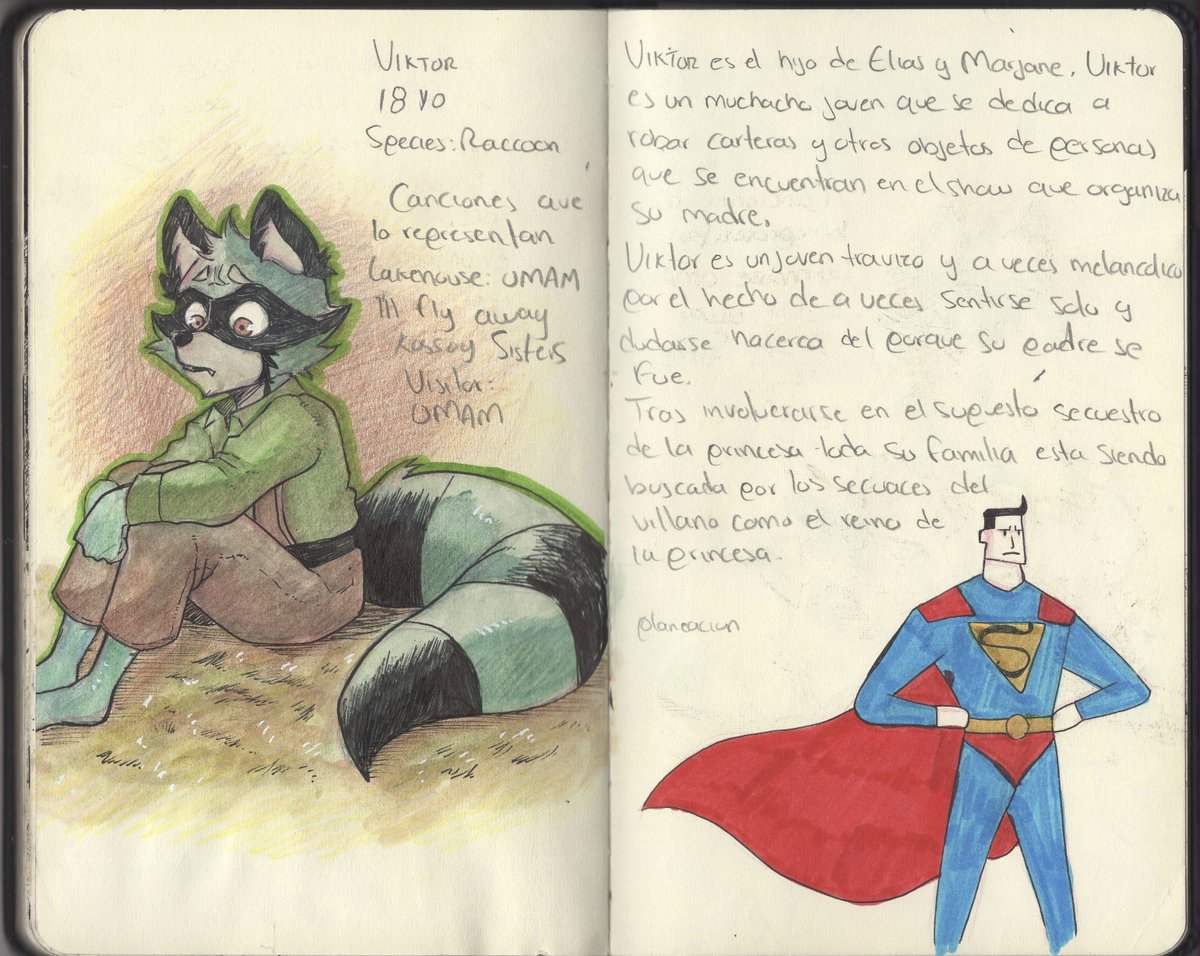 VIKTOR
18 YO
Species: Raccoon
Canciones que
lo representan
Lakehouse: OMAM
I'll fly away
Kossoy Sisters
Visitor:
OMAM
VIKTOR es el hijo de Elias y Marjane. Viktor
es un muchacho joven que se dedica a
robar carteras y otros objetos de personas
que se encuentran en el show que organiza
su madre.
Viktor es un joven travizo y a veces melancolico
por el hecho de a veces sentirse solo y
dudarse hacerca del porque su padre se
fue.
Tras involucrarse en el supuesto secuestro
de la princesa toda su familia esta siendo
buscada por los secuaces del
villano como el reino de
la princesa.
planeacion
S